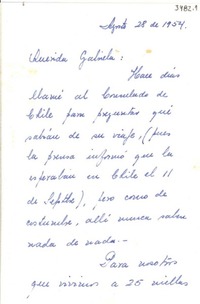 3482.1
Agosto 28 de 1954.
Querida Gabriela:
Hace días
llamé al Consulado de
Chile para preguntar qué
sabían de su viaje, (pues
la prensa informó que la
esperaban en Chile el 11
de Septbre), pero como de
costumbre, allí nunca saben
nada de nada.-
Para nosotros
que vivimos a 25 millas